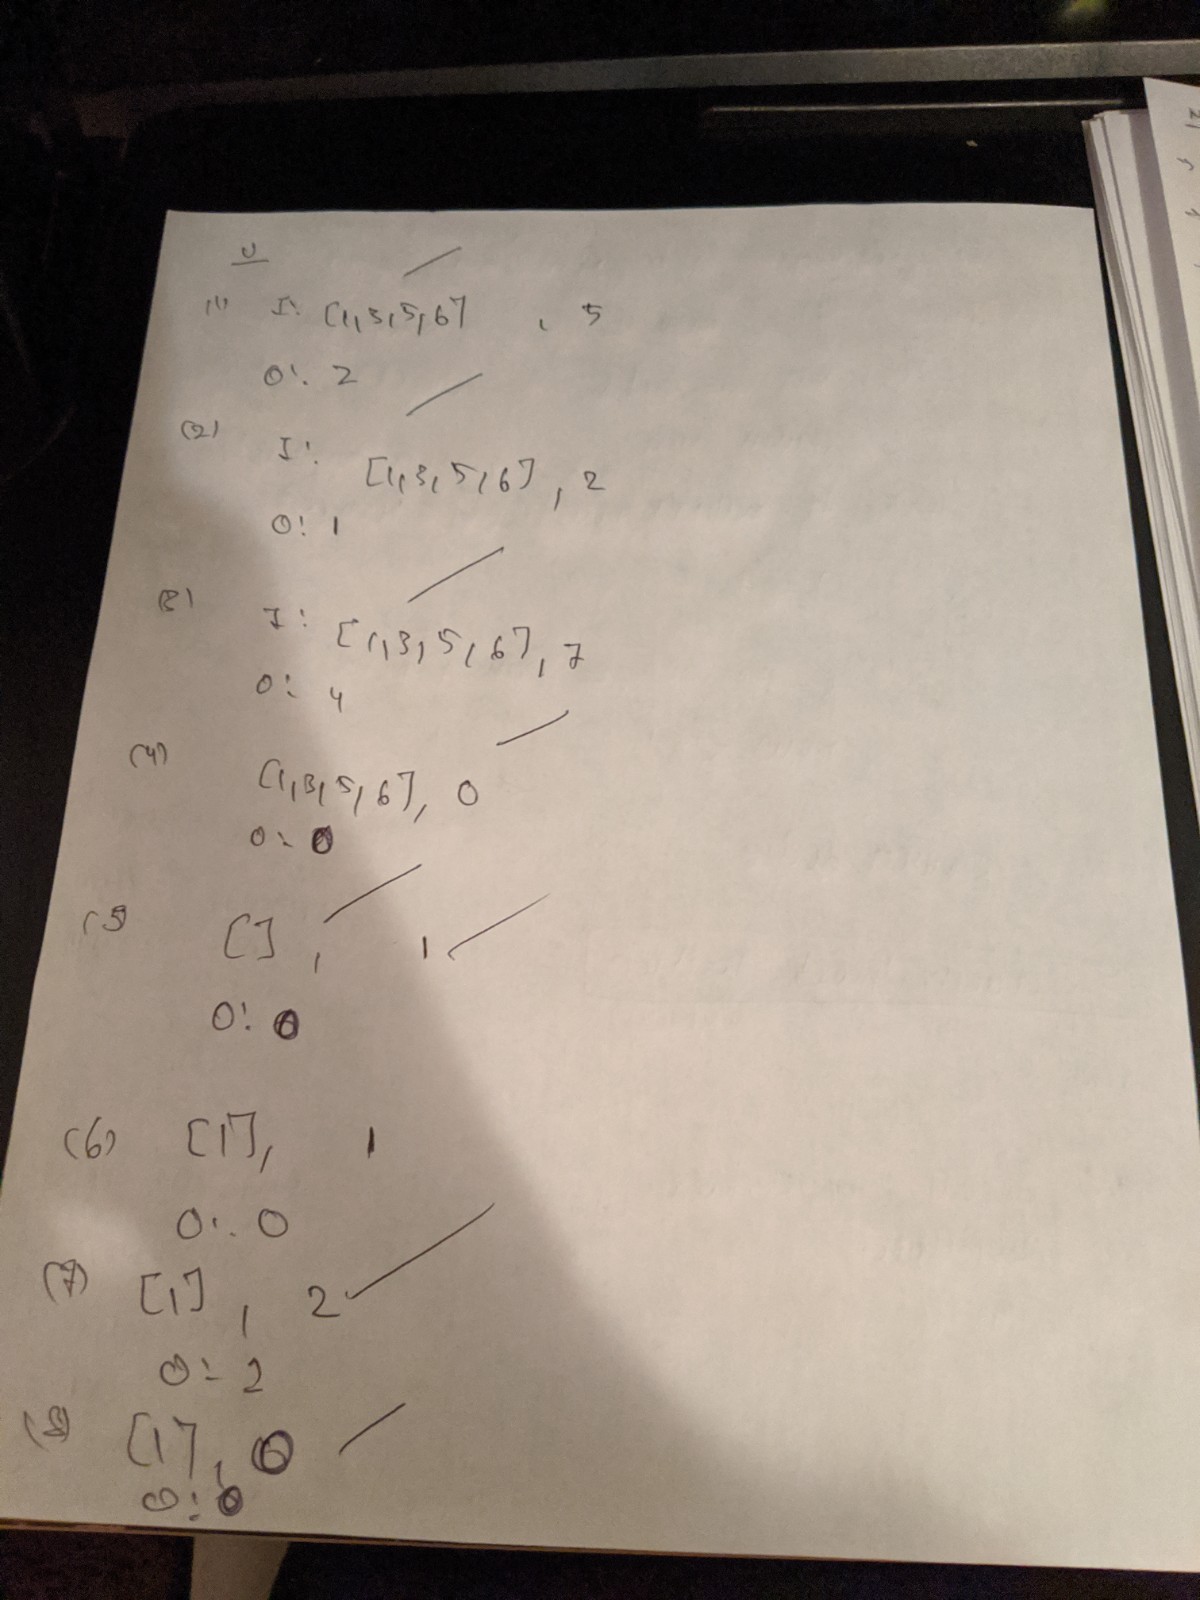 U
(1) I: [1,3,5,6] , 5
O: 2
(2) I: [1,3,5,6], 2
O: 1
(3) I: [1,3,5,6], 7
O: 4
(4) [1,3,5,6], 0
O: 0
(5) [], 1
O: 0
(6) [1], 1
O: 0
(7) [1], 2
O: 2
(8) [1], 0
O: 0